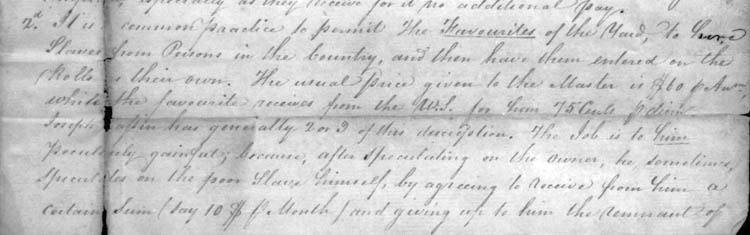 especially as they receive for it no additional pay.
2.d It is common practice to permit the Favourites of the Yard, to hire
Slaves from Persons in the Country, and then have them entered on the
Rolls as their own. The usual price given to the Master is $60 p Ann,
while the favourite receives from the U.S. for him 75 Cents p diem.
Joseph has generally 2 or 3 of this description. The Job is to him
Peculiarly gainful; because, after speculating on the owner, he sometimes,
Speculates on the poor Slave himself, by agreeing to receive from him a
certain Sum (say 10 $ p Month) and giving up to him the remnant of